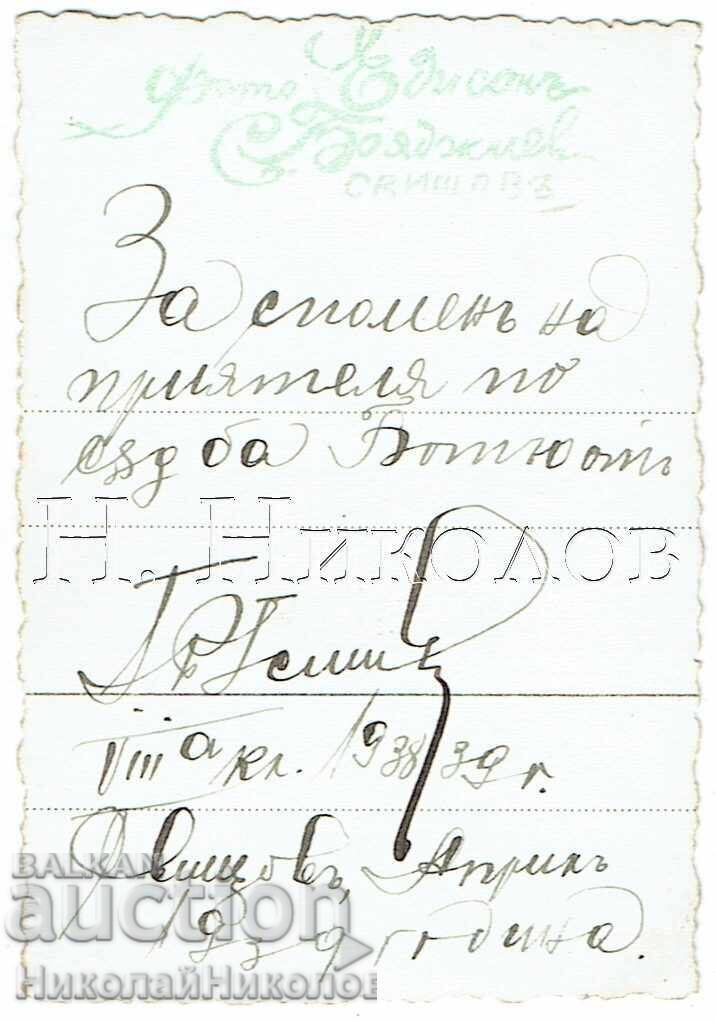 Фото Едисонъ
С. Бояджиев
СВИЩОВЪ
За споменъ на
приятеля по
съдба Ботю отъ
Н. Николов
VIII а кл. 1938/39 г.
Свищовъ, Априлъ
1939 година.
BALKAN
auction
НиколайНиколов